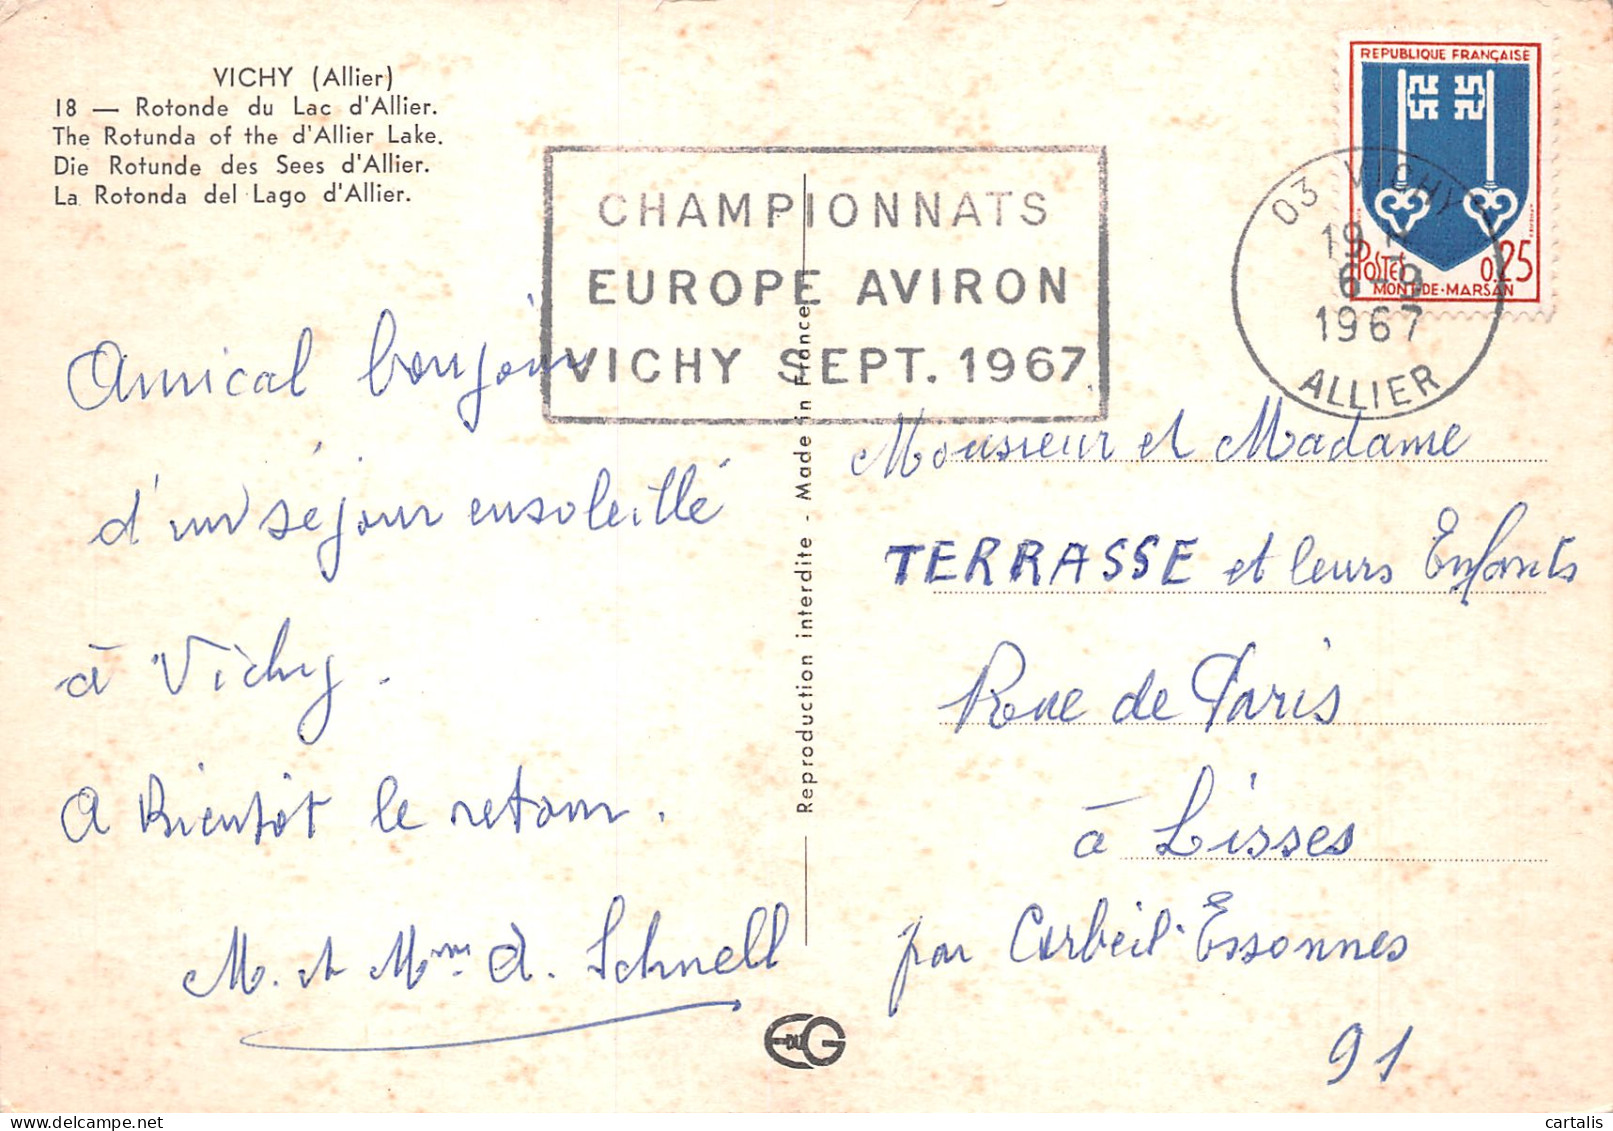 VICHY (Allier)
18 — Rotonde du Lac d'Allier.
The Rotunda of the d'Allier Lake.
Die Rotunde des Sees d'Allier.
La Rotonda del Lago d'Allier.
CHAMPIONNATS
EUROPE AVIRON
VICHY SEPT. 1967
REPUBLIQUE FRANÇAISE
Postes 0,25
MONT-DE-MARSAN
03 VICHY
19 H
6-9
1967
ALLIER
Amical bonjour
d'un séjour ensoleillé
à Vichy.
A Bientôt le retour.
M. et Mme A. Schnell
Reproduction interdite - Made in France
EduG
Monsieur et Madame
TERRASSE et leurs Enfants
Rue de Paris
à Lisses
par Corbeil-Essonnes
91
cartalis